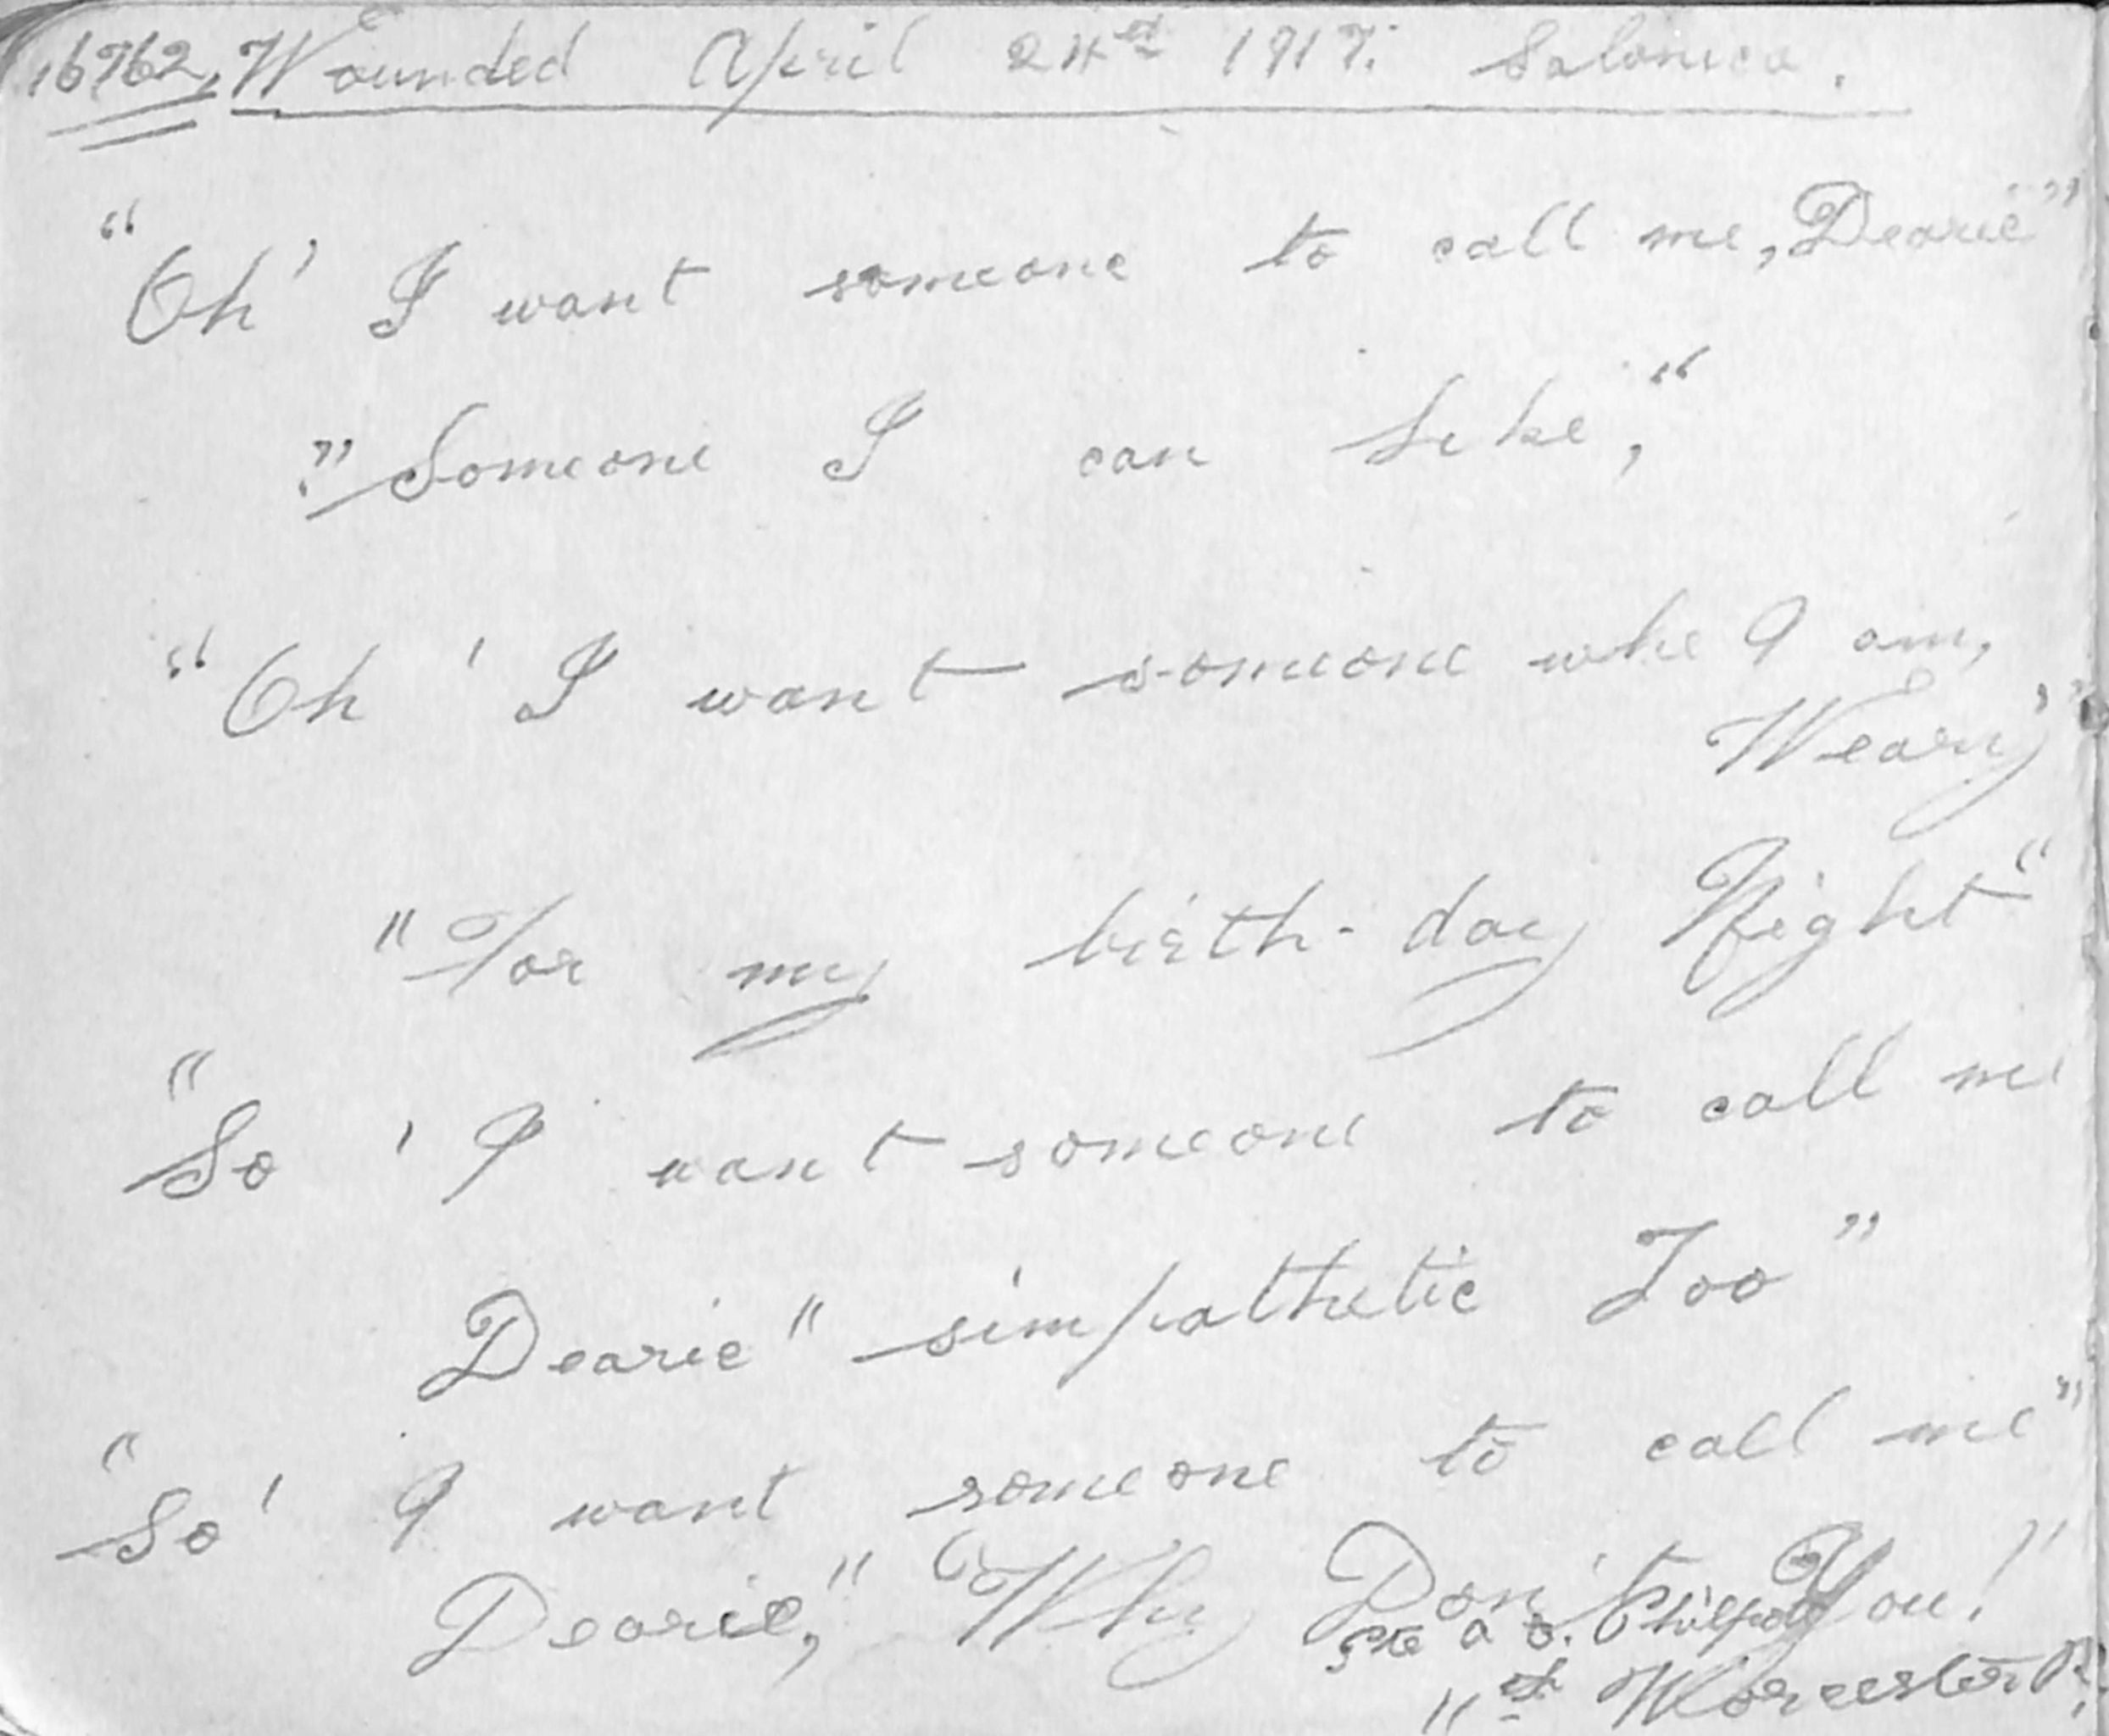 16762, Wounded April 24th 1917. Salonica.
"Oh' I want someone to call me, Dearie"
"Someone I can Like,"
"Oh ' I want someone whe I am,
Weary"
"For my birth-day Night"
"So ' I want someone to call me
Dearie" simpathetic Too"
"So' I want someone to call me"
Dearie," "Why Don't You!"
Pte A. Philpott
11th Worcester R.